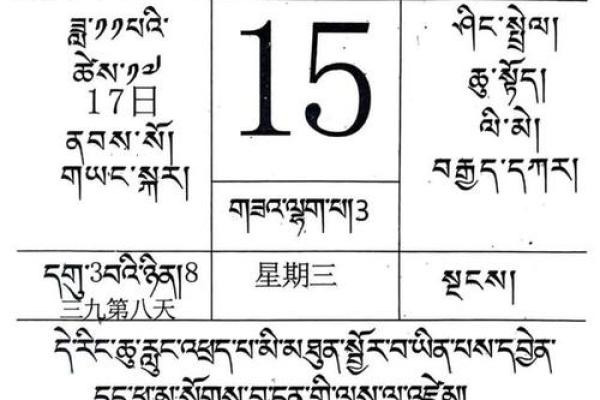 ཟླ་༡༡པའི་
ཚེས་༡༧
17日
ནབས་སོ།
གཡང་སྐར།
15
གཟའ་ལྷག་པ།3
ཤིང་སྤྲེལ།
ཆུ་སྟོད།
ལི་མེ།
བརྒྱད་དཀར།
དགུ་3བའི་ཉིན།8
三九第八天
星期三
སྔངས།
དེ་རིང་ཆུ་རླུང་འཕྲད་པ་མི་མཐུན་སྦྱོར་བ་ཡིན་པས་དབྱེན་